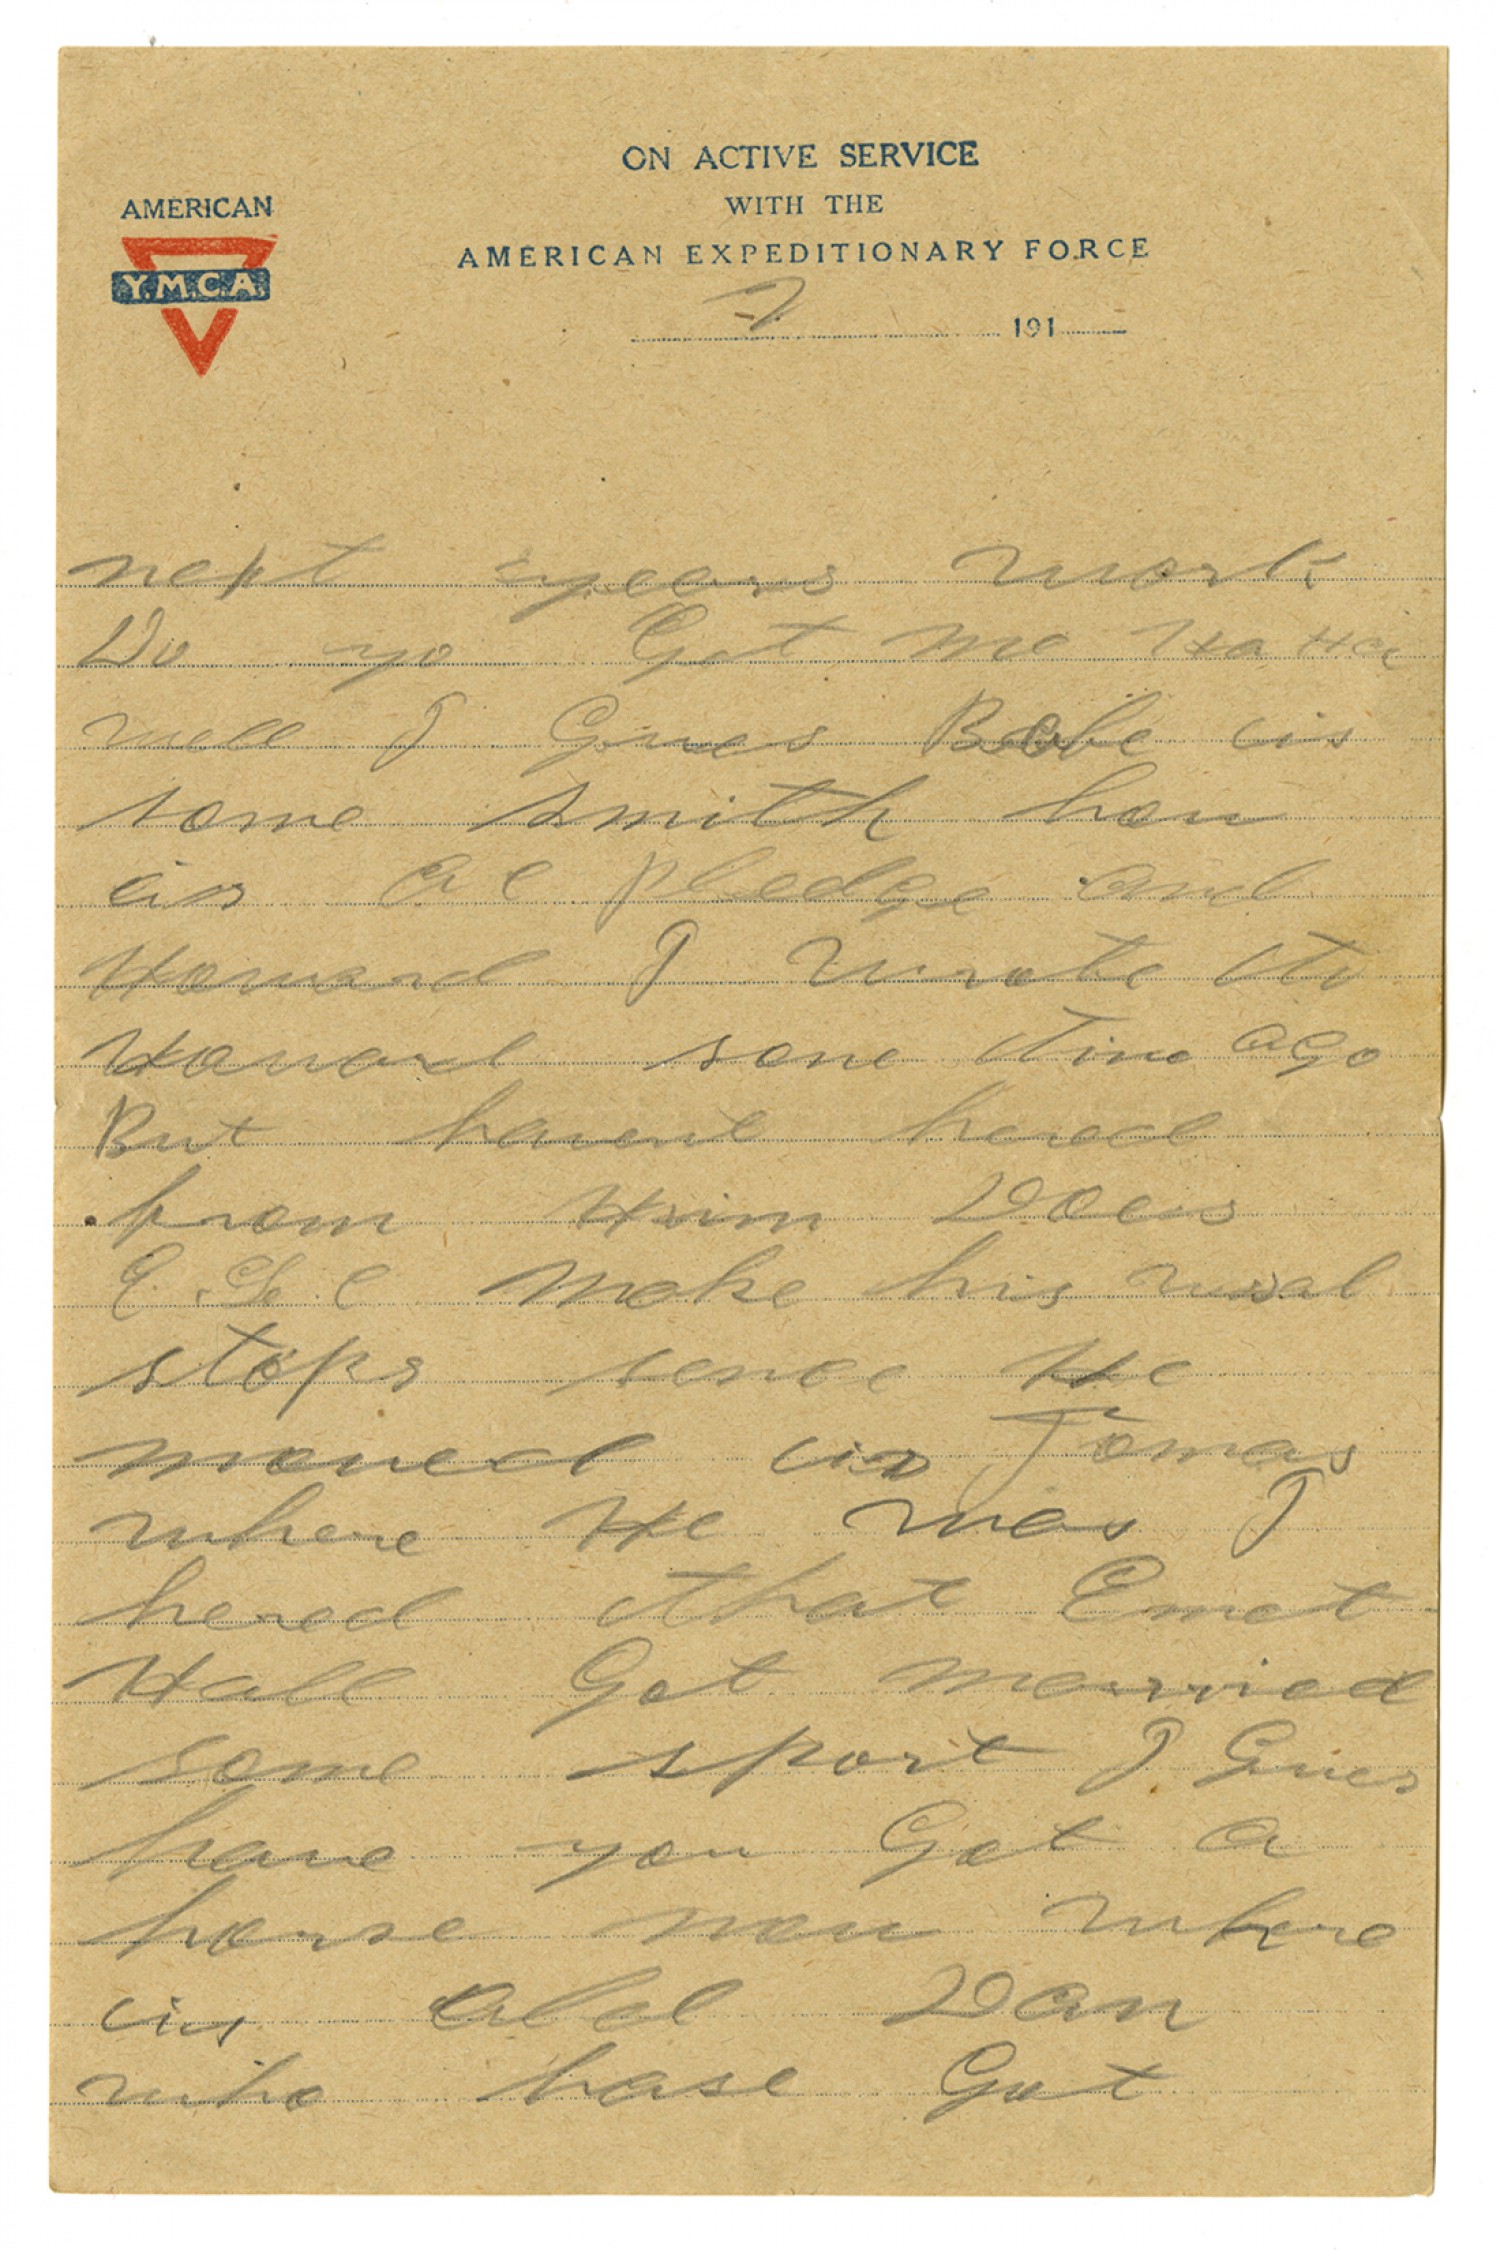 ON ACTIVE SERVICE
WITH THE
AMERICAN
AMERICAN EXPEDITIONARY FORCE
Y.M.C.A.
7
191
next years work
Do yo Get me Ha Ha
well I Gues Babe is
some smith how
is al pledge and
Howard I wrote to
Howard some time ago
But havent hered
from Him Does
E. G. C make his usal
stops sence He
moved in Tomas
where He was I
hered that Emet
Hall Got married
some sport I Gues
have you Got a
horse now where
is old Dan
who hase Got